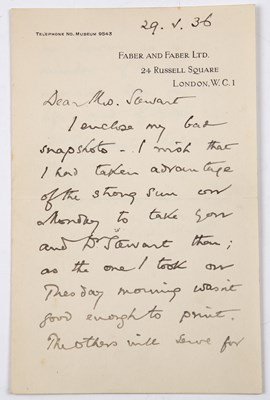 29. V. 36
TELEPHONE NO. MUSEUM 9543
FABER AND FABER LTD.
24 RUSSELL SQUARE
LONDON, W.C. 1
Dear Mrs. Stewart
I enclose my bad
snapshots - I wish that
I had taken advantage
of the strong sun on
Monday to take you
and Dr Stewart then;
as the one I took on
Tuesday morning wasn't
good enough to print.
The others will serve for